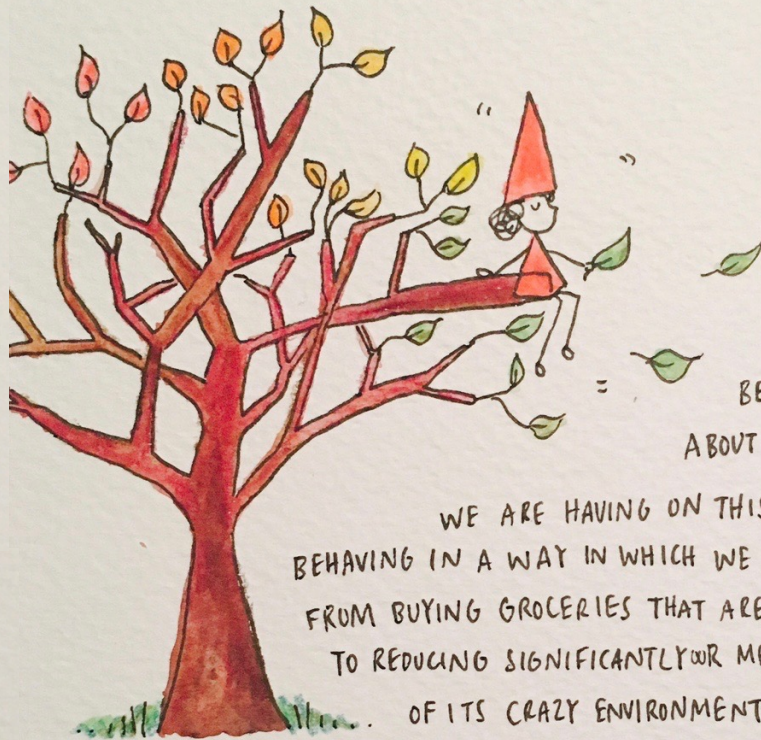 BE
ABOUT
WE ARE HAVING ON THIS
BEHAVING IN A WAY IN WHICH WE
FROM BUYING GROCERIES THAT ARE
TO REDUCING SIGNIFICANTLY OUR
OF ITS CRAZY ENVIRONMENT